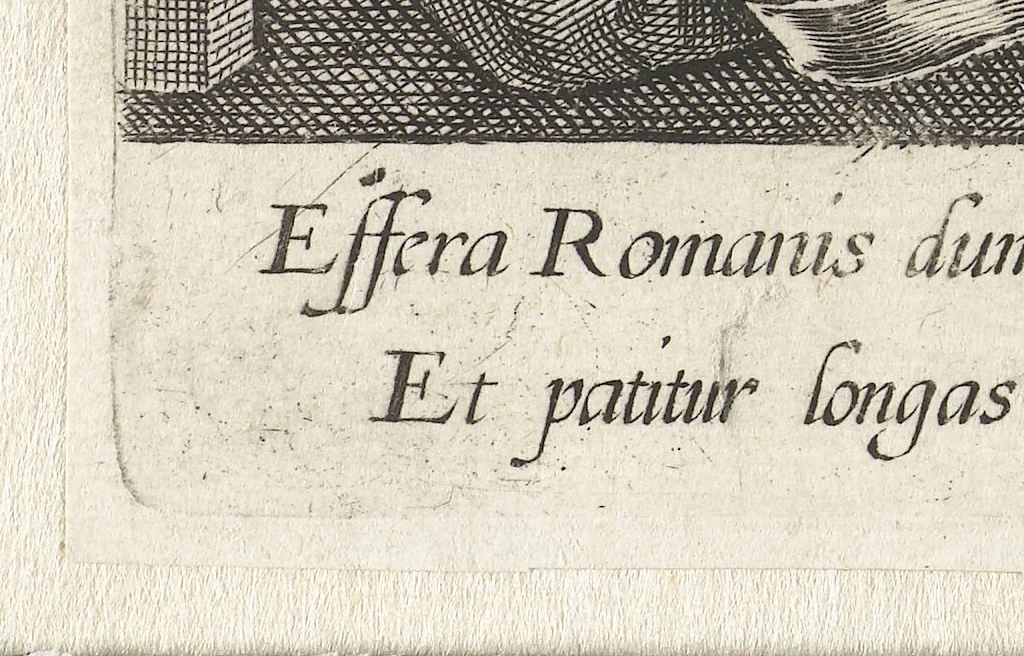 Effera Romanis dum
Et patitur longas